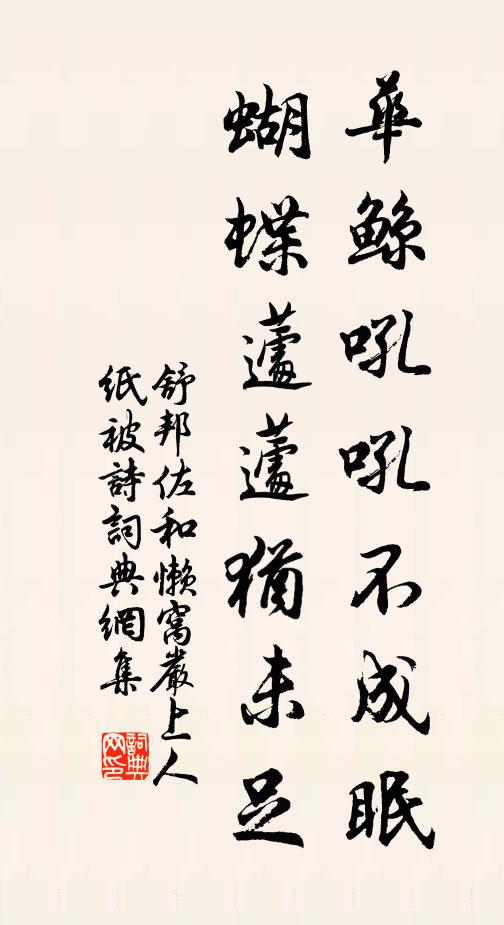 華鯨吼吼不成眠
蝴蝶蘧蘧猶未足
舒邦佐和懶窩嚴上人
紙被詩詞典網集
詞典
网印